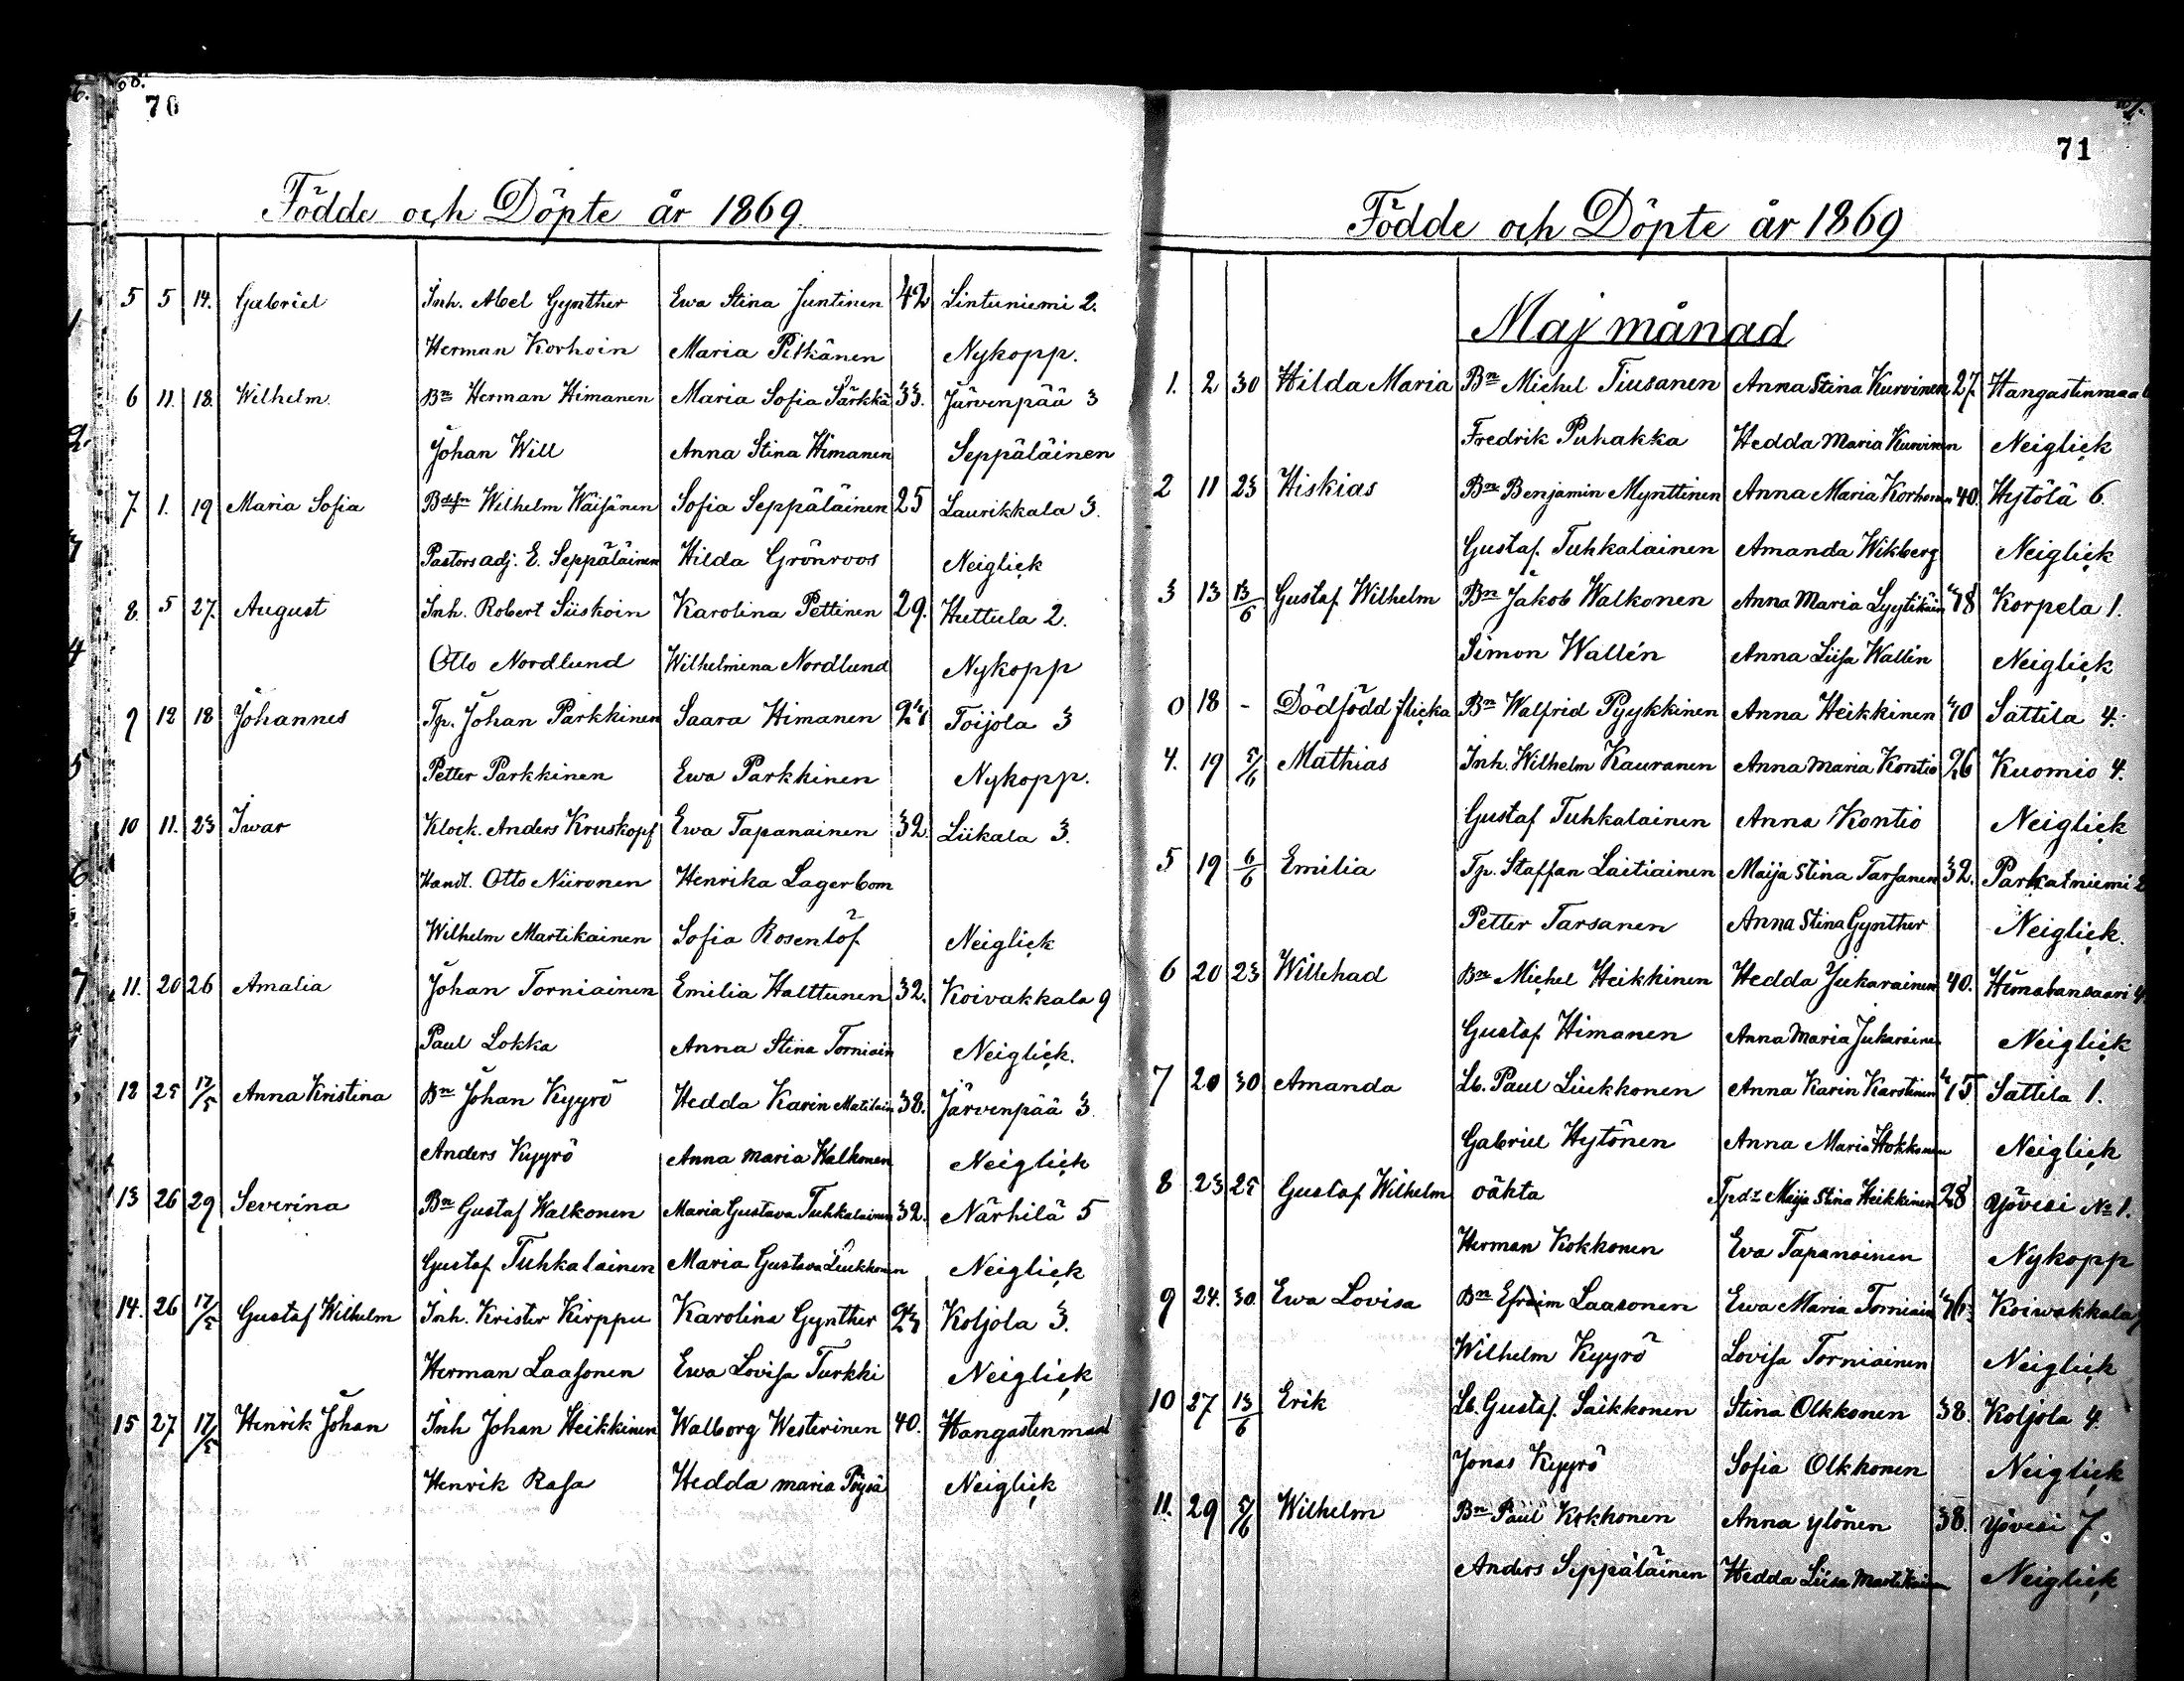 70
Födde och Döpte år 1869.
5 5 14. Gabriel Inh. Abel Gynther Ewa Stina Juntinen 42 Lintuniemi 2.
Herman Korhoin Maria Pitkänen Nykopp.
6 11. 18. Wilhelm. Bn Herman Himanen Maria Sofia Särkkä 33. Järvenpää 3
Johan Will Anna Stina Himanen Seppäläinen
7. 1. 19 Maria Sofia Bdesn Wilhelm Wäisänen Sofia Seppäläinen 25 Laurikkala 3.
Pastors adj. E. Seppäläinen Hilda Grönroos Neiglick
8. 5 27. August Inh. Robert Siiskoin Karolina Pettinen 29. Huttula 2.
Otto Nordlund Wilhelmina Nordlund Nykopp
9 12 18 Johannes Tp. Johan Parkkinen Saara Himanen 24 Toijola 3
Petter Parkkinen Ewa Parkkinen Nykopp.
10 11. 23 Iwar Klock. Anders Kruskopf Ewa Tapanainen 32. Liikala 3.
Handl. Otto Niironen Henrika Lagerbom
Wilhelm Martikainen Sofia Rosenlöf Neiglick
11. 20 26 Amalia Johan Torniainen Emilia Halttunen 32. Koivakkala 9
Paul Lokka Anna Stina Torniain Neiglick.
12 25 17/5 Anna Kristina Bn Johan Kyyrö Hedda Karin Matilain 38. Järvenpää 3.
Anders Kyyrö Anna Maria Walkonen Neiglick
13 26 29 Severina Bn Gustaf Walkonen Maria Gustava Tuhkalainen 32. Närhilä 5
Gustaf Tuhkalainen Maria Gustava Liukkonen Neiglick
14. 26 17/5 Gustaf Wilhelm Inh. Krister Kirppu Karolina Gynther 23 Koljola 3.
Herman Laasonen Ewa Lovisa Turkki Neiglick
15 27 17/5 Henrik Johan Inh Johan Heikkinen Walborg Westerinen 40. Hangastenmaa
Henrik Rasa Hedda Maria Töysä Neiglick
71
Födde och Döpte år 1869
Maj månad
1. 2 30 Hilda Maria Bn Michel Tiusanen Anna Stina Kurvinen 27. Hangastenmaa
Fredrik Puhakka Hedda Maria Kurvinen Neiglick
2 11 23 Hiskias Bn Benjamin Mynttinen Anna Maria Korhonen 40. Hytölä 6.
Gustaf Tuhkalainen Amanda Wikberg Neiglick
3 13 13/6 Gustaf Wilhelm Bn Jakob Walkonen Anna Maria Lyytikäin 48 Korpela 1.
Simon Wallén Anna Liisa Wallén Neiglick
0 18 - Dödfödd flicka Bn Walfrid Pyykkinen Anna Heikkinen 40 Sattila 4.
4. 19 5/6 Mathias Inh. Wilhelm Kauranen Anna Maria Kontio 26 Kuomio 4.
Gustaf Tuhkalainen Anna Kontio Neiglick
5 19 6/6 Emilia Tp. Staffan Laitiainen Maija Stina Tarsanen 32. Parkatniemi 2
Petter Tarsanen Anna Stina Gynther Neiglick.
6 20 23 Willehad Bn Michel Heikkinen Hedda Jukarainen 40. Himalansaari 4.
Gustaf Himanen Anna Maria Jukarainen Neiglick
7 20 30 Amanda Lb. Paul Liukkonen Anna Karin Karstinen 45 Sattila 1.
Gabriel Hytönen Anna Maria Hokkonen Neiglick
8 23 25 Gustaf Wilhelm oäkta Tpdr Maija Stina Heikkinen 28 Yövesi No 1.
Herman Kokkonen Eva Tapanainen Nykopp
9 24. 30. Ewa Lovisa Bn Efraim Laasonen Ewa Maria Torniain 46. Koiwakkala
Wilhelm Kyyrö Lovisa Torniainen Neiglick
10 27 13/6 Erik Lb. Gustaf Saikkonen Stina Olkkonen 38. Koljola 4.
Jonas Kyyrö Sofia Olkkonen Neiglick
11. 29 5/6 Wilhelm Bn Paul Kokkonen Anna Ylönen 38. Yövesi 7.
Anders Seppäläinen Hedda Liisa Martikainen Neiglick